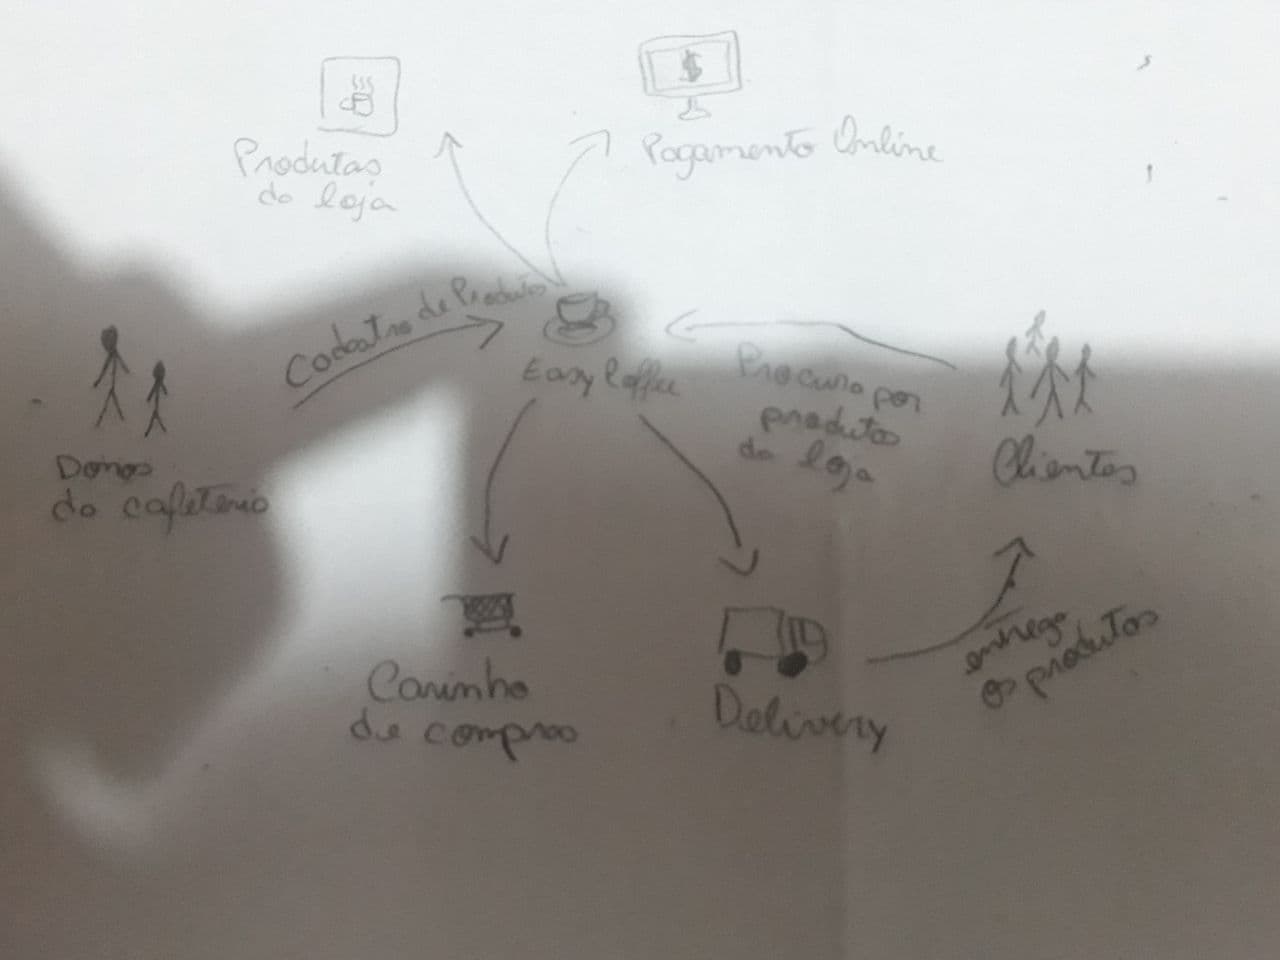 $
Produtos
da loja
Pagamento Online
Cadastro de Produtos
Easy Coffee
Procura por
produtos
da loja
Clientes
Donos
da cafeteria
Carinho
de compras
Delivery
entrega
os produtos